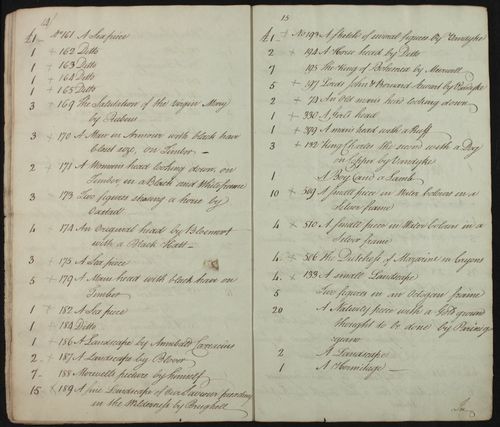 14
£1 No 161 A Sea piece
1 + 162 Ditto
1 + 163 Ditto
1 + 164 Ditto
1 + 165 Ditto
3 + 169 The Salutation of the Virgin Mary
by Rubens
3 + 170 A Man in Armour with black hair
size, on Timber
2 + 171 A Womans head looking down, on
Timber, in a Black and White frame
3 + 173 Two figures shoeing a horse by
4 + 174 An Original head by Bloemart
with a Black Hatt
3 + 175 A Sea piece
5 + 179 A Mans head with black hair on
Timber
1 + 182 A Sea piece
1 + 184 Ditto
1 + 186 A Landscape by Annibale
2 + 187 A Landscape by
7 - 188 picture by himself
15 + 189 A fine Landscape of our Saviour preaching
in the Wilderness by Brughell
15
£1 + No 193 A Sketch of several figures by Vandyke
2 + 194 A Horse head by Ditto
7 195 The King of Bohemia by
5 + 197 Lords John & Bernard Stewart by Vandyke
2 + 79 An Old mans head looking down
1 + 330 A Girls head
1 + 399 A mans head with a Ruff
3 + 132 King Charles the second with a Dog
on Copper by Vandyke
1 A Boy and a Lamb
10 + 509 A small piece in Water Colours in a
Silver frame
4 + 510 A small piece in Water Colours in a
Silver frame
4 + 506 The Dutchess of Mazarine in Crayons
4 + 133 A small Landscape
5 Two figures in an Octogon frame
20 A Nativity piece with a Gold ground
thought to be done by
2 A Landscape
1 A Hermitage